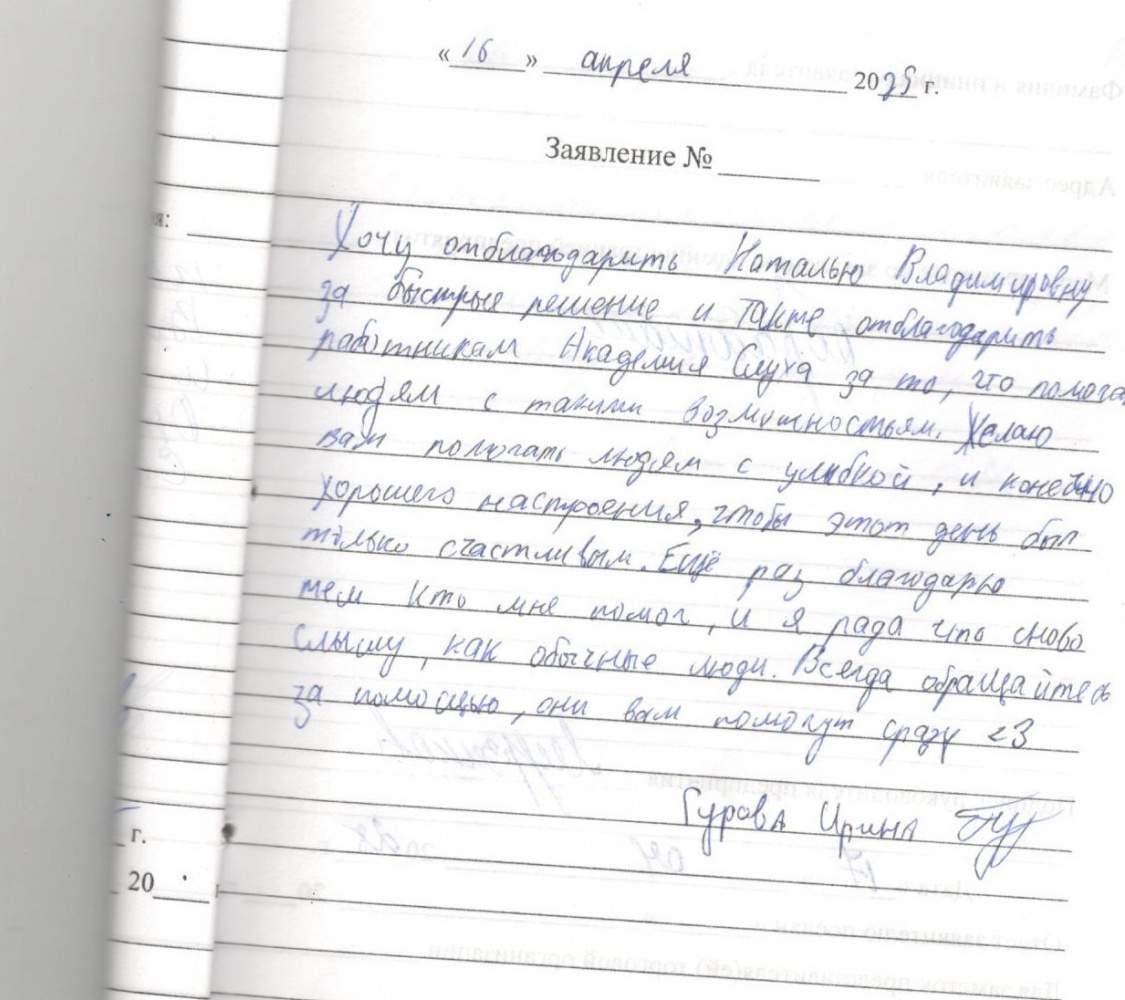 «16» апреля 2025 г.
Заявление №
я:
Хочу отблагодарить Наталью Владимировну
за быстрые решение и также отблагодарить
работникам Академия Слуха за то, что помога
людям с такими возможностьям. Желаю
вам помогать людям с улыбкой, и конечно
хорошего настроения, чтобы этот день был
только счастливым. Ещё раз благодарю
тем кто мне помог, и я рада что сново
слышу, как обычные люди. Всегда обращайтесь
за помощью, они вам помогут сразу <3
Гурова Ирина
г.
20